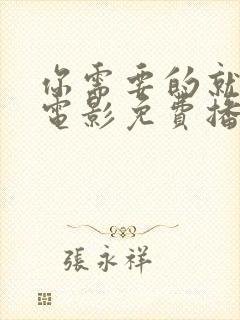 你需要的就
電影免費播
張永祥